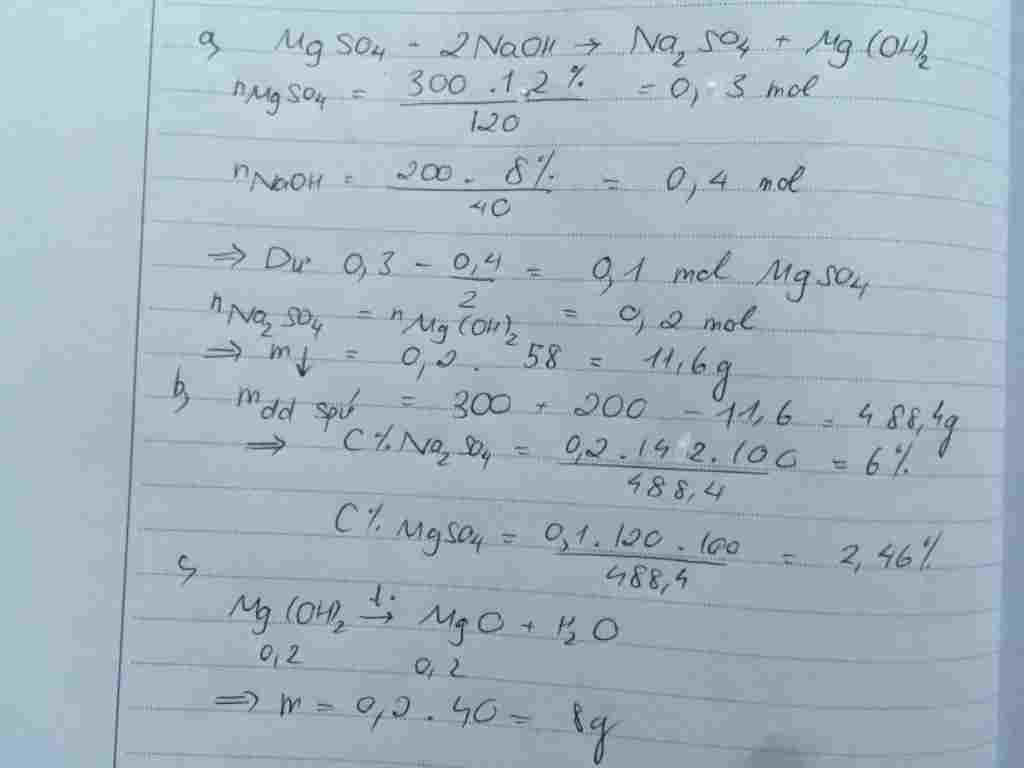 a, MgSO4 - 2NaOH → Na2SO4 + Mg(OH)2
nMgSO4 = 300 . 12% / 120 = 0,3 mol
nNaOH = 200 . 8% / 40 = 0,4 mol
⇒ Dư 0,3 - 0,4/2 = 0,1 mol MgSO4
nNa2SO4 = nMg(OH)2 = 0,2 mol
⇒ m↓ = 0,2 . 58 = 11,6g
b, mdd spứ = 300 + 200 - 11,6 = 488,4g
⇒ C% Na2SO4 = 0,2 . 142 . 100 / 488,4 = 6%
C% MgSO4 = 0,1 . 120 . 100 / 488,4 = 2,46%
c,
Mg(OH)2 t°→ MgO + H2O
0,2 0,2
⇒ m = 0,2 . 40 = 8g